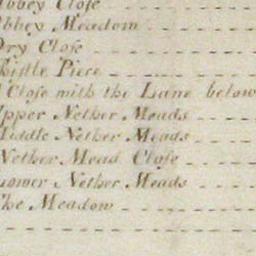 Abbey Close
Abbey Meadow
Dry Close
Thistle Piece
Close with the Lane below
Upper Nether Meads
Middle Nether Meads
Nether Mead Close
Lower Nether Meads
The Meadow